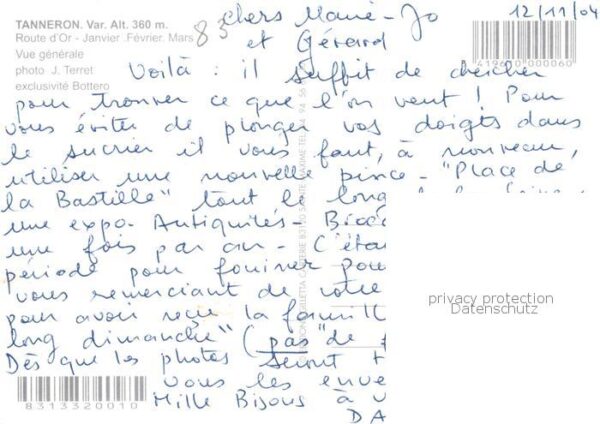 TANNERON. Var. Alt. 360 m.
Route d'Or - Janvier .Février. Mars
Vue générale
photo J. Terret
exclusivité Bottero
83
12/11/04
419610 000060
chers Marie-Jo
et Gérard
Voilà : il suffit de chercher
pour trouver ce que l'on veut ! Pour
vous éviter de plonger vos doigts dans
le sucrier il vous faut, à nouveau,
utiliser une nouvelle pince - "Place de
la Bastille" tout le long
une expo. Antiquités - Broc
une fois par an - C'éta
période pour fouiner pou
vous remerciant de votre
pour avoir reçu la famill
long dimanche" (pas "de
Dès que les photos seront
vous les enve
Mille Bisous à v
DA
privacy protection
Datenschutz
8313320010